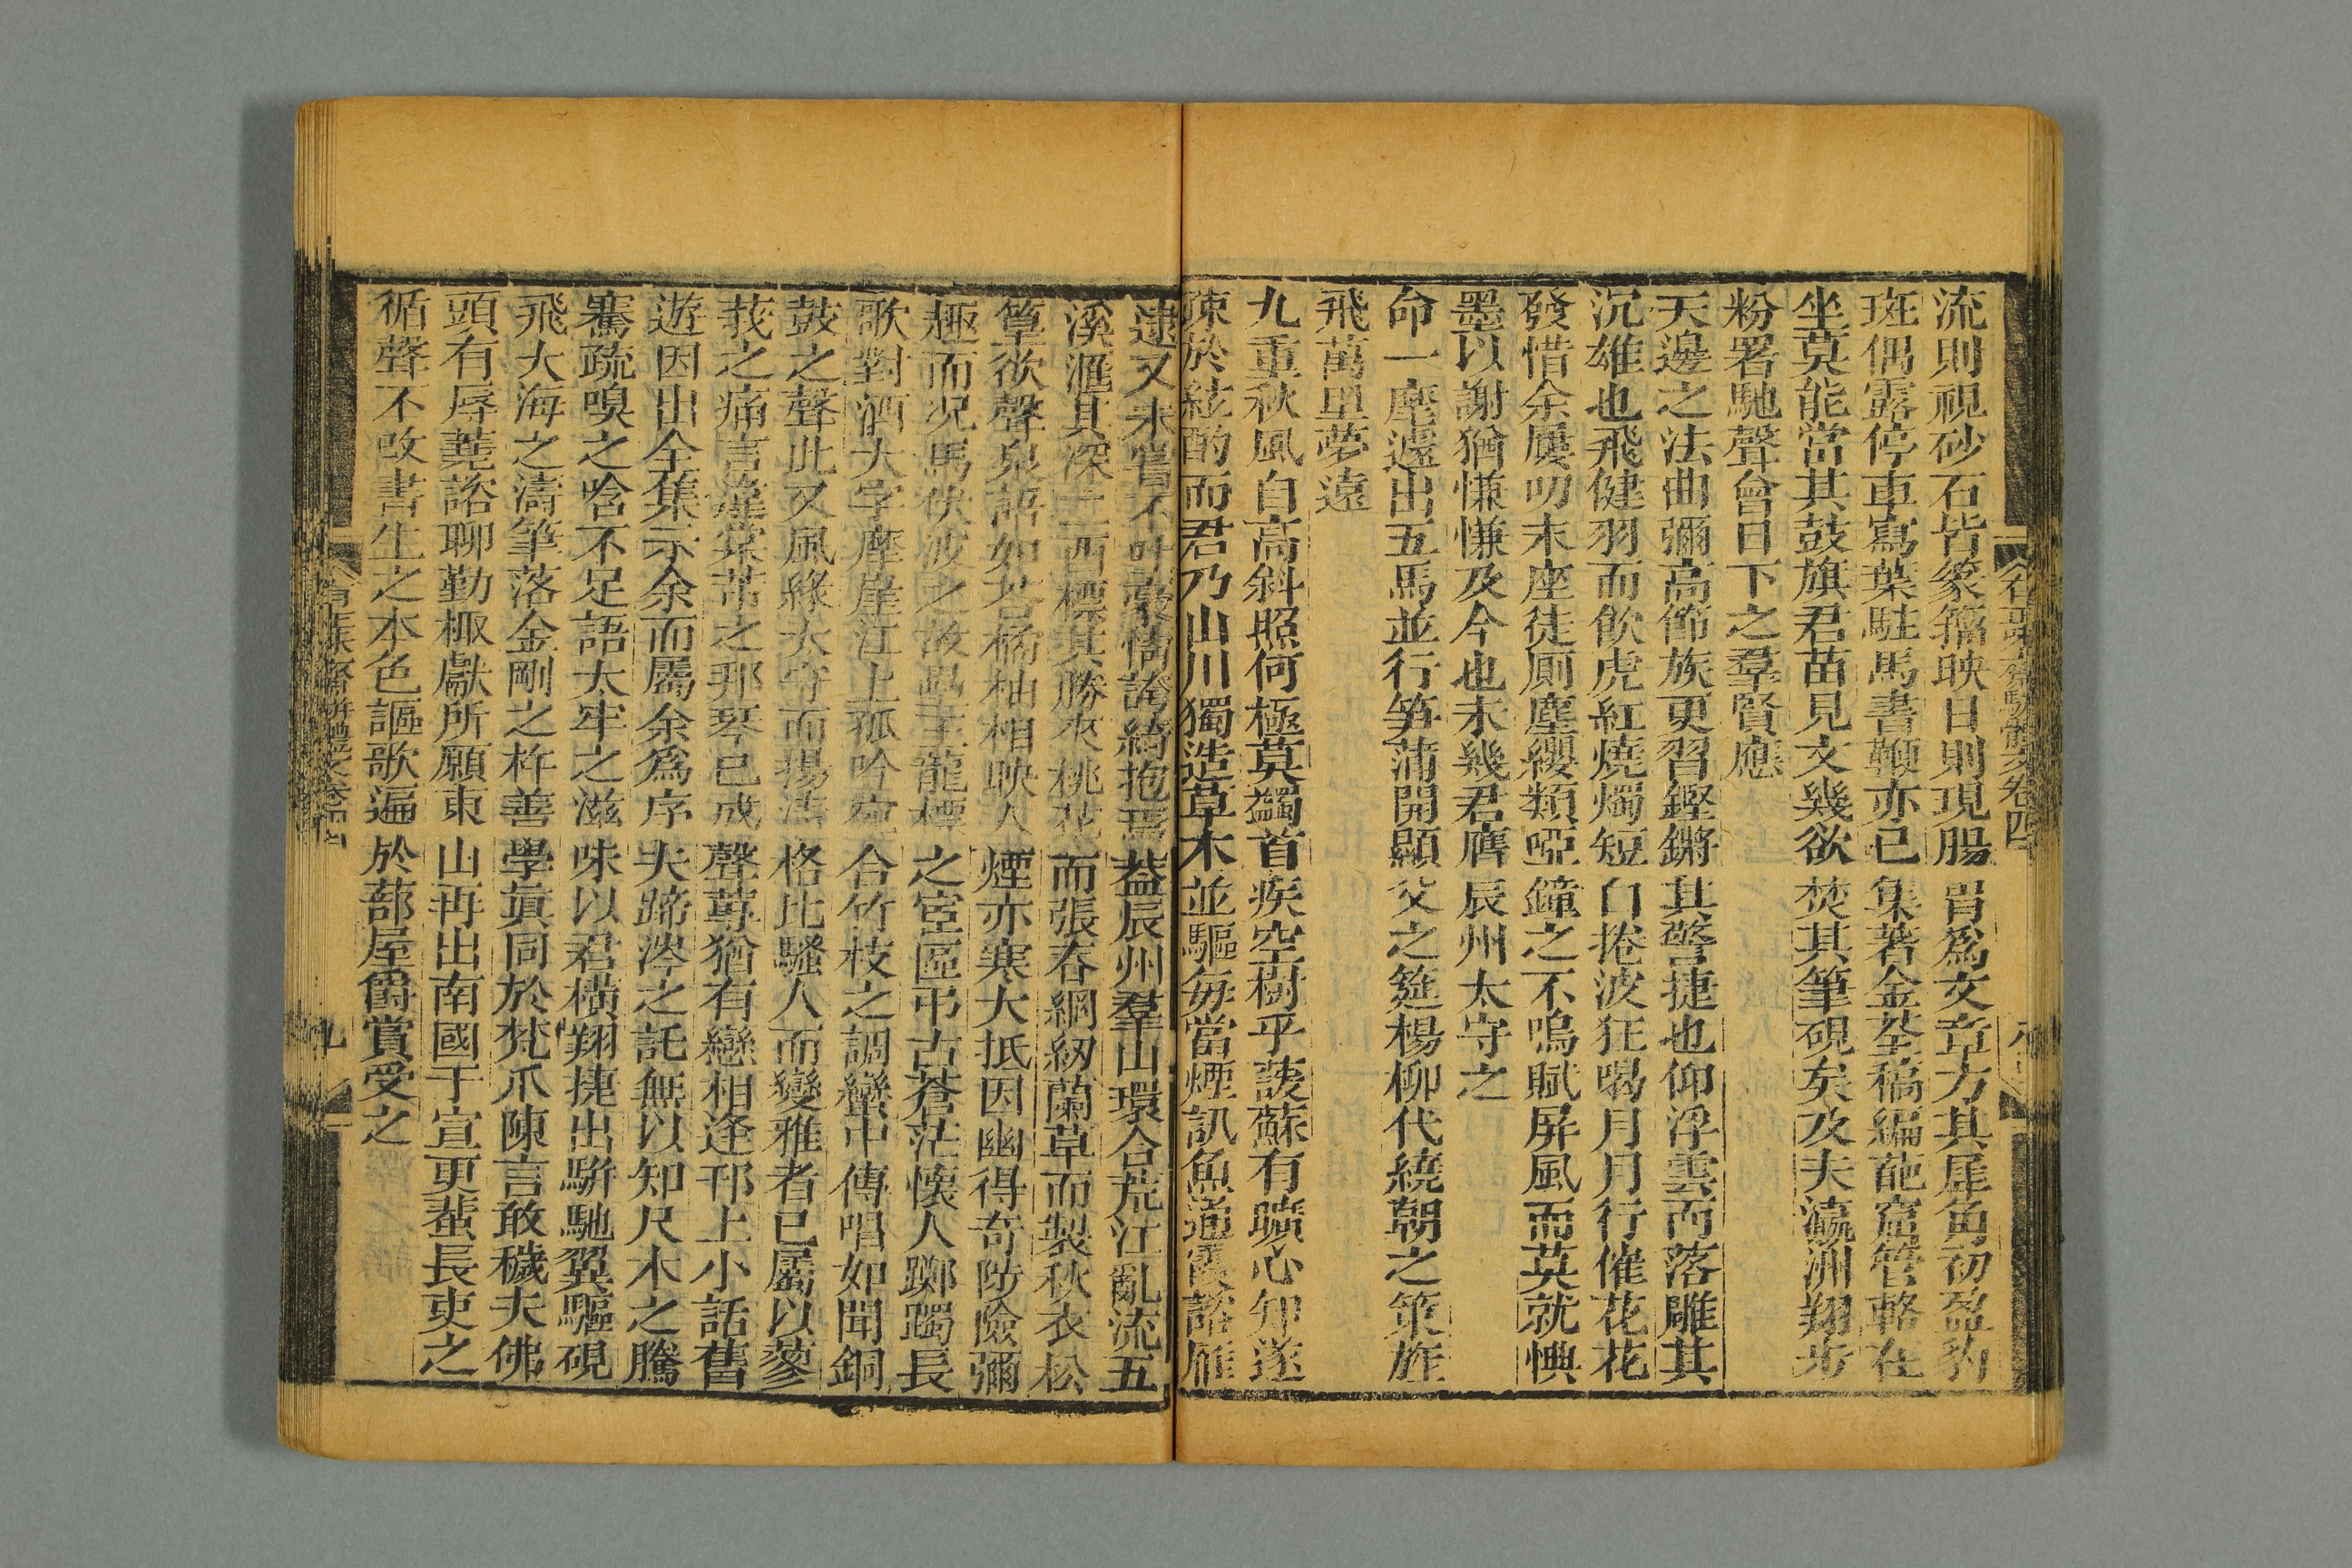 流則視砂石皆篆籀映日則現腸胃爲文章方其犀角初盈豹
斑偶露停車寫葉駐馬書鞭亦已集著金荃稿編葩窟管輅在
坐莫能當其鼓旗君苗見文幾欲焚其筆硯矣及夫瀛洲翔步
粉署馳聲會日下之羣賢應
天邊之法曲彌高節族更習鏗鏘其警捷也仰浮雲而落雕其
沉雄也飛健羽而飲虎紅燒燭短白捲波狂喝月月行催花花
發惜余屢叨末座徒厠塵纓類啞鐘之不鳴賦屏風而莫就懊
墨以謝猶慊慊及今也未幾君膺辰州太守之
命一麾遽出五馬並行笋蒲開顯父之筵楊柳代繞朝之策旌
飛萬里夢遠
九重秋風自高斜照何極莫蠲首疾空樹乎諼蘇有曠心知遂
疎於絃酌而君乃山川獨造草木並驅毎當煙訊魚通霞諮雁
逮又未嘗不叶襞慯誇綺抱焉葢辰州羣山環合荒江亂流五
溪滙其深二酉標其勝夾桃花而張春網紉蘭草而製秋衣松
篁欲聲泉語如 橘柚相映人煙亦寒大抵因幽得奇陟險彌
極而況馬伏波之故壘王龍標之宦區弔古蒼茫懷人躑躅長
歌對酒大字摩崖江上孤吟宛合竹枝之調巒中傳唱如聞銅
鼓之聲此又風緣太守而揚清格比騷人而變雅者已屬以蓼
莪之痛言滙棠芾之邪琴已成聲蓴猶有戀相逢邗上小話舊
遊因出全集示余而屬余爲序夫蹄涔之託無以知尺木之騰
騫疏嗅之唅不足語太牢之滋味以君橫翔捷出騈馳翼驅硯
飛大海之濤筆落金剛之杵善學眞同於梵爪陳言敢穢夫佛
頭有辱蕘諮聊勤椒獻所願東山再出南國于宣更蜚長吏之
循聲不改書生之本色謳歌遍於蔀屋爵賞受之